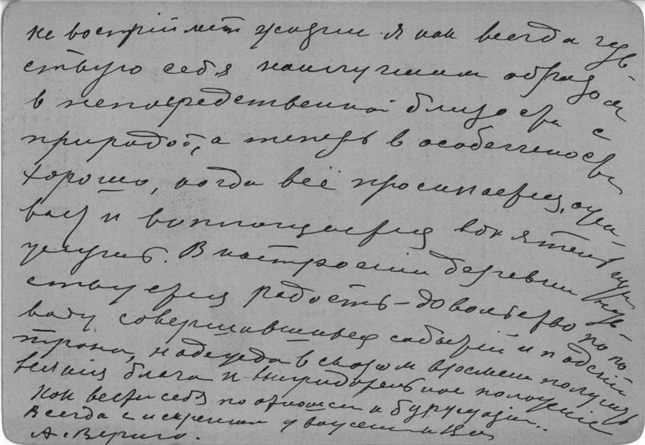 не восприимет жизни. Я как всегда чув-
ствую себя наилучшим образом
в непосредственной близости с
природой, а теперь в особенности
хорошо, когда всё просыпается, ожи-
вает и воплощается
В настроении деревни чув-
ствуется радость – довольство по по-
воду совершившихся событий и
надежда в скором времени получить
блага и
как вести себя по отношен. к буржуазии..
Всегда с искренним уважением к Вам
А. Вериго.